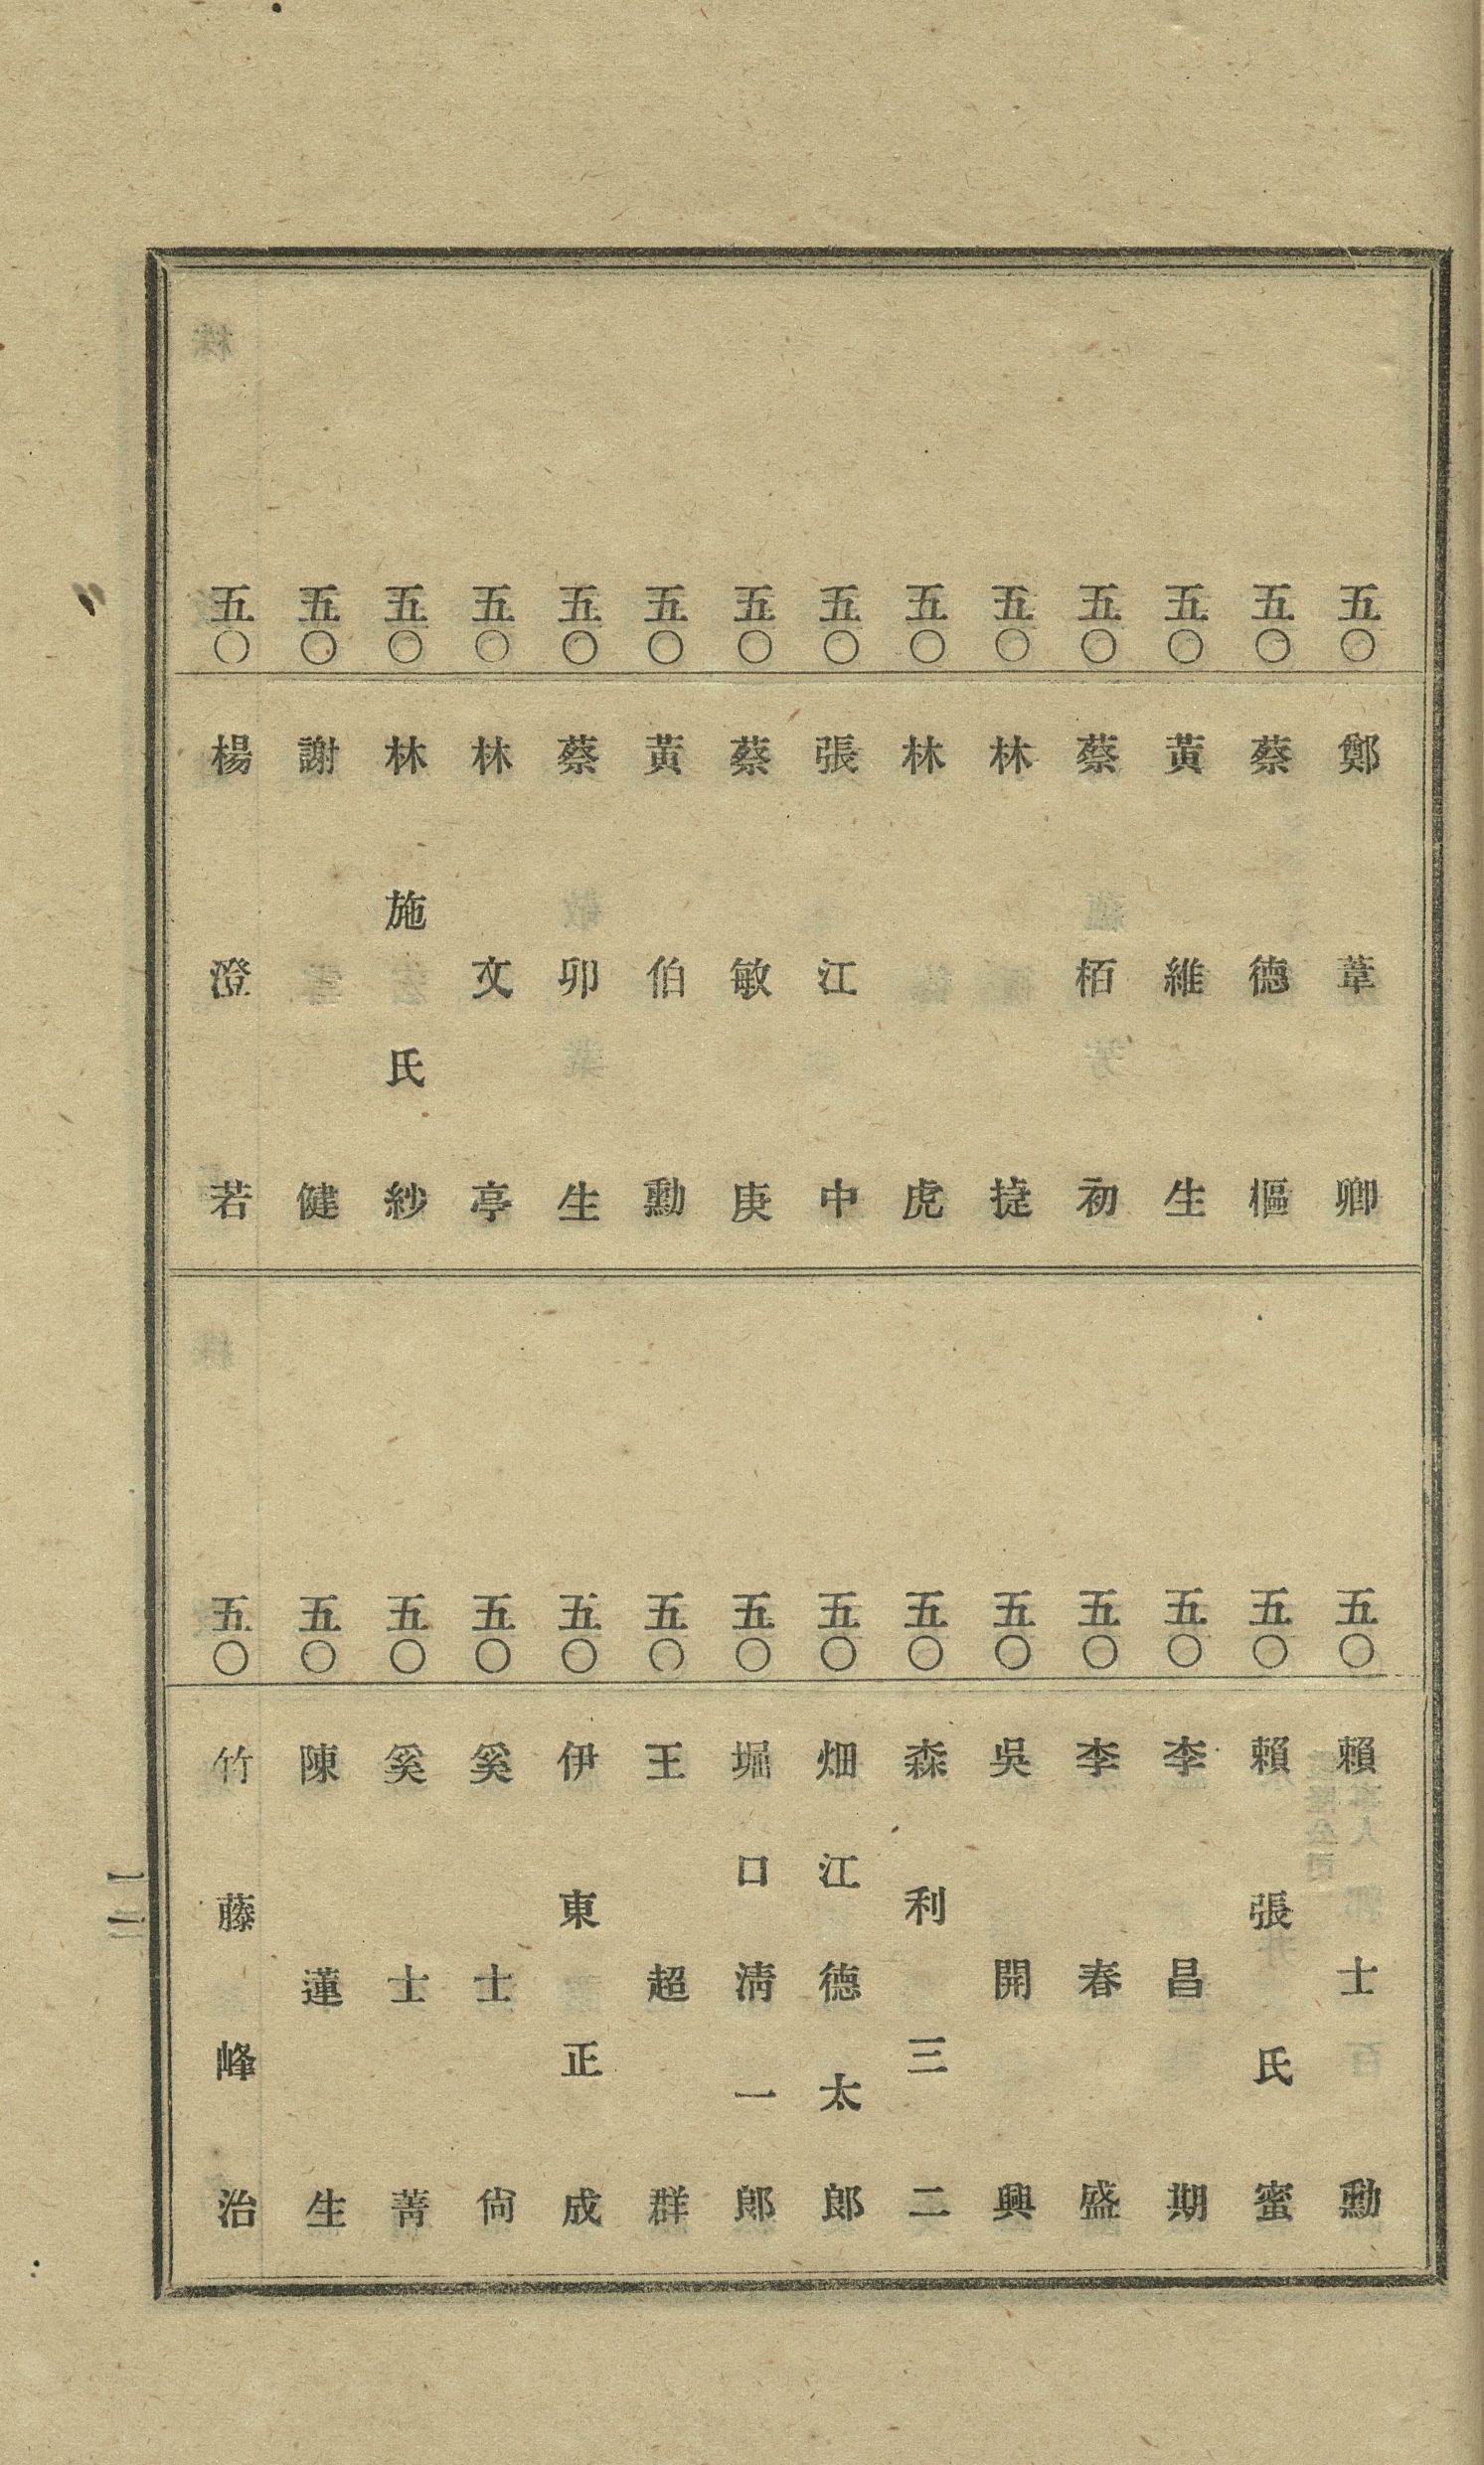 五〇 鄭葦卿
五〇 蔡德樞
五〇 黃維生
五〇 蔡栢初
五〇 林捷
五〇 林虎
五〇 張江中
五〇 蔡敏庚
五〇 黃伯勳
五〇 蔡卯生
五〇 林文亭
五〇 林施氏紗
五〇 謝健
五〇 楊澄若
五〇 賴士勳
五〇 賴張氏蜜
五〇 李昌期
五〇 李春盛
五〇 吳開興
五〇 森利三二
五〇 畑江德太郎
五〇 堀口淸一郎
五〇 王超群
五〇 伊東正成
五〇 奚士尙
五〇 奚士菁
五〇 陳蓮生
五〇 竹藤峰治